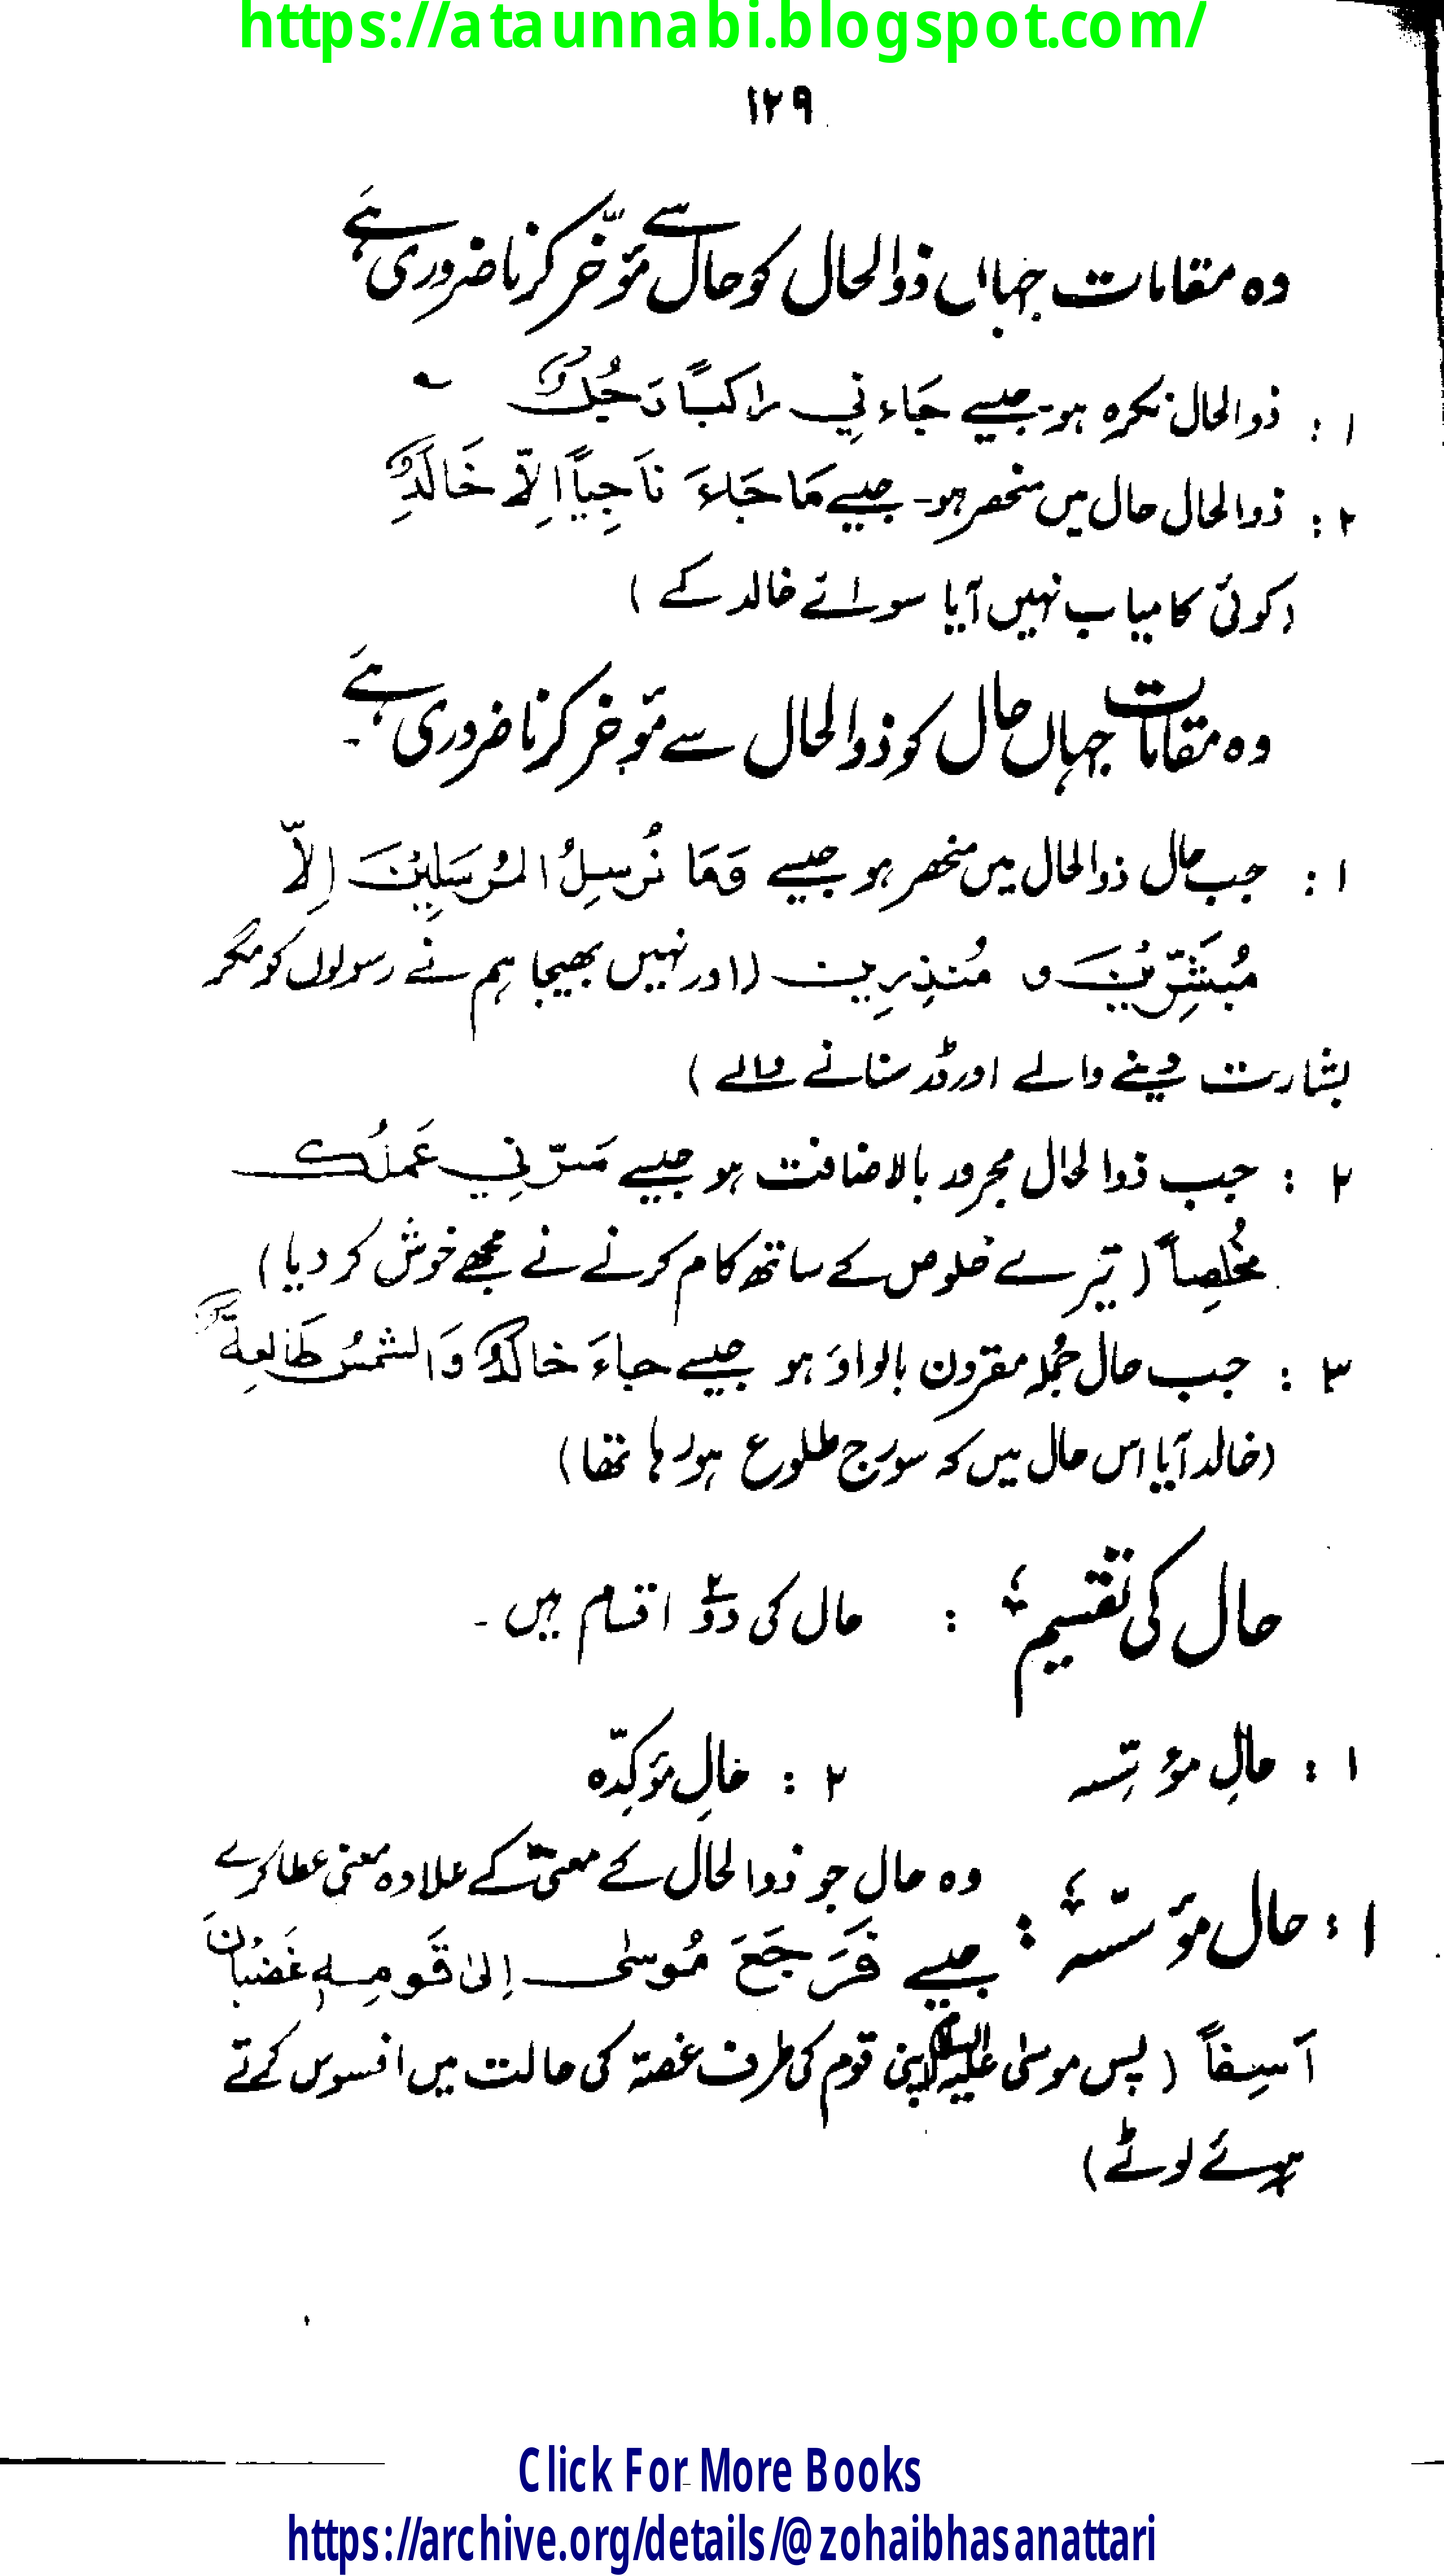 https://ataunnabi.blogspot.com/
۱۲۹
وہ مقامات جہاں ذوالحال کو حال سے مؤخّر کرنا ضروری ہے
۱ : ذوالحال نکرہ ہو۔ جیسے جَاءنِي راكبًا رَجُلٌ ۔
۲ : ذوالحال حال میں منحصر ہو۔ جیسے مَا جَاءَ نَاجِياً اِلّا خَالِدٌ
(کوئی کامیاب نہیں آیا سوائے خالد کے )
وہ مقامات جہاں حال کو ذوالحال سے مؤخّر کرنا ضروری ہے۔
۱ : جب حال ذوالحال میں منحصر ہو جیسے وَمَا نُرسِلُ المُرسَلِيْنَ اِلاّ
مُبَشِّرِيْنَ و مُنذِرِين (اور نہیں بھیجا ہم نے رسولوں کو مگر
بشارت دینے والے اور ڈر سنانے والے )
۲ : جب ذوالحال مجرور بالاضافت ہو جیسے سَرّنِي عَملُك
مخُلِصاً ( تیرے خلوص کے ساتھ کام کرنے نے مجھے خوش کر دیا )
۳ : جب حال جُملہ مقرون بالواوَ ہو جیسے جاءَ خالدٌ وَالشمسُ طَالِعةٌ
(خالد آیا اس حال میں کہ سورج طلوع ہو رہا تھا )
حال کی تقسیم : حال کی دو۲ اقسام ہیں ۔
۱ : حالِ مؤسّسہ ۲ : حالِ مؤکِدّہ
۱ : حال مؤسّسہ : وہ حال جو ذوالحال کے معنیٰ کے علاوہ معنی عطا کرے
جیسے فَرَجَعَ مُوسٰى اِلىٰ قَومِهٖ غَضْبَانَ
اَسِفاً ( پس موسیٰ علیہ السلام اپنی قوم کی طرف غصّہ کی حالت میں افسوس کرتے
ہوئے لوٹے )
Click For More Books
https://archive.org/details/@zohaibhasanattari